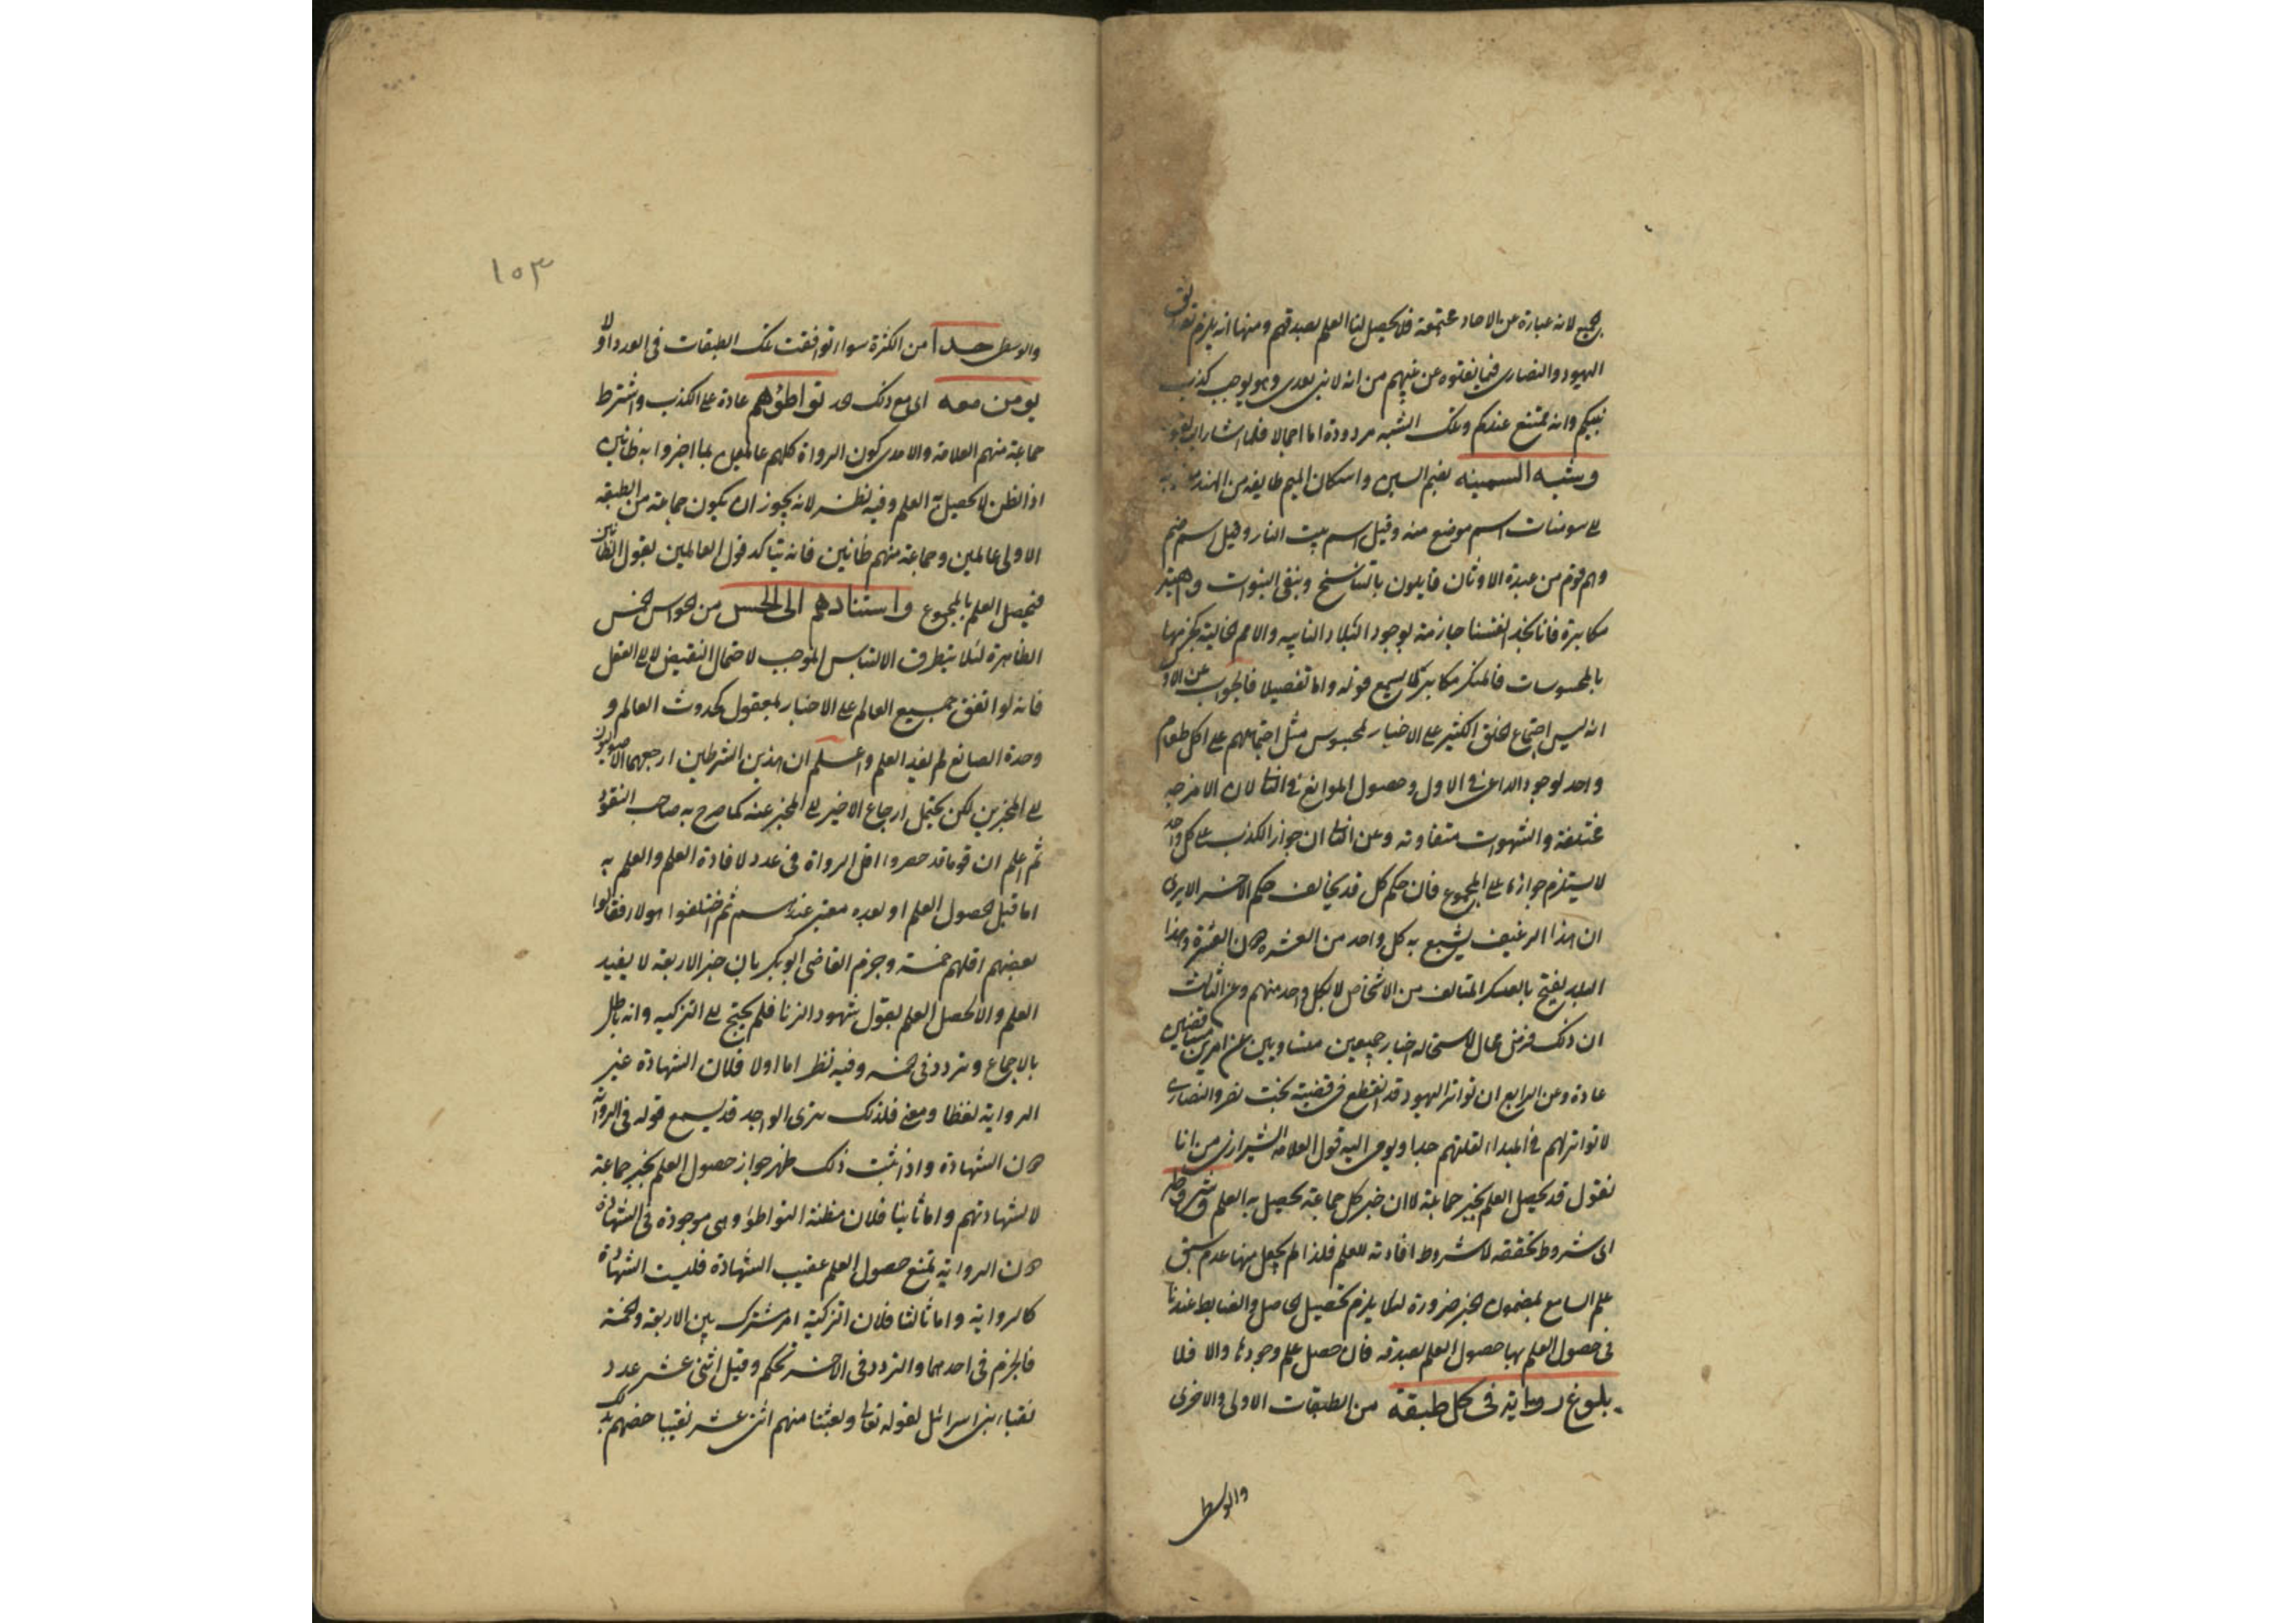 الجميع لانه عبارة عن الاحاد مجتمعة فلا يحصل لنا العلم بصدقهم ومنها انه يلزم تصديق
اليهود والنصارى فيما نقلوه عن نبيهم من انه لا نبى بعدى وهو يوجب كذب
نبيكم وانه ممتنع عندكم وتلك الشبه مردودة اما اجمالا فلما اشار اليه بقوله
وشبه السمينه بضم السين واسكان الميم طايفة من الهند
على سومنات اسم موضع منه وقيل اسم بيت النار وقيل اسم صنم
وهم قوم من عبدة الاوثان قايلون بالتناسخ وبنفى النبوات
مكابرة فانا نجد انفسنا جازمة بوجود البلاد النايية والامم الخالية كجزمها
بالمحسوسات فالمنكر مكابر لا يسمع قوله واما تفصيلا فالجواب عن الاول
انه ليس اجتماع الخلق الكثير على الاخبار لمحسوس مثل اجتماعهم على اكل طعام
واحد لوجود الداعى فى الاول وحصول الموانع فى الثانى لان الامزجه
مختلفة والشهوات متفاوته وعن الثانى ان جواز الكذب على كل واحد
لا يستلزم جوازه على المجموع فان حكم كل قد يخالف حكم الاخر الا يرى
ان هذا الرغيف يشبع به كل واحد من العشره دون العشرة وهذا
البلد يفتح بالعسكر المتالف من الاشخاص لا بكل واحد منهم وعن الثالث
ان ذلك فرض محال لاستحاله اخبار جميعين متساويين عن امرين متناقضين
عادة وعن الرابع ان تواتر اليهود قد انقطع فى قضية بخت نصر والنصارى
لا تواتر لهم فى المبداء لقلتهم جدا ويومى اليه قول العلامه الشيرازى من انا
نقول قد يحصل العلم بخبر جماعة لا ان خبر كل جماعة يحصل به العلم وشروطه
اى شروط تحققه لا شروط افادته للعلم فلذا لم يجعل منها عدم سبق
علم السامع بمضمون الخبر ضرورة لئلا يلزم تحصيل الحاصل والضابط عندنا
فى حصول العلم بها حصول العلم بصدقه فان حصل علم وجودها والا فلا
بلوغ رواية فى كل طبقة من الطبقات الاولى والاخرى
والوسط
١٥٣
والوسطى حدا من الكثرة سواء توافقت تلك الطبقات فى العدد او لا
يومن معه اى مع ذلك الحد تواطؤهم عادة على الكذب واشترط
جماعة منهم العلامة والامدى كون الرواة كلهم عالمين بما اخبروا به لا ظانين
اذ الظن لا يحصل به العلم وفيه نظر لانه يجوز ان يكون جماعة من الطبقة
الاولى عالمين وجماعة منهم ظانين فانه يتاكد قول العالمين بقول الظانين
فيحصل العلم بالمجموع واستنادهم الى الحس من الحواس الخمس
الظاهرة لئلا يتطرق الالتباس الموجب لاحتمال النقيض لا على العقل
فانه لو اتفق جميع العالم على الاخبار بمعقول كحدوث العالم و
وحدة الصانع لم يفيد العلم واعلم ان هذين الشرطين ارجعهما الاصوليون
على المخبرين لكن يحتمل ارجاع الاخير على المخبر عنه كما صرح به صاحب النقود
ثم اعلم ان قوما قد حصروا اقل الرواة فى عدد لافادة العلم والعلم به
اما قبل حصول العلم او بعده معتبر عندهم ثم اختلفوا هولاء فقالوا
بعضهم اقلهم خمسة وجزم القاضى ابو بكر بان خبر الاربعة لا يفيد
العلم والا لحصل العلم بقول شهود الزنا فلم يحتج على التزكيه وانه باطل
بالاجماع وتردد فى خمسه وفيه نظر اما اولا فلان الشهادة غير
الرواية لفظا ومعنى فلذلك ترى الواحد قد يسمع قوله فى الرواية
دون الشهادة واذا ثبت ذلك ظهر جواز حصول العلم بخبر جماعة
لا بشهادتهم واما ثانيا فلان مظنة التواطؤ وهى موجودة فى الشهادة
دون الرواية تمنع حصول العلم عقيب الشهادة فليست الشهادة
كالرواية واما ثالثا فلان التزكية امر مشترك بين الاربعة والخمسة
فالجزم فى احدهما والتردد فى الاخر تحكم وقيل اثنى عشر عدد
نقباء بنى اسرائيل لقوله تعالى وبعثنا منهم اثنى عشر نقيبا خصهم بذلك